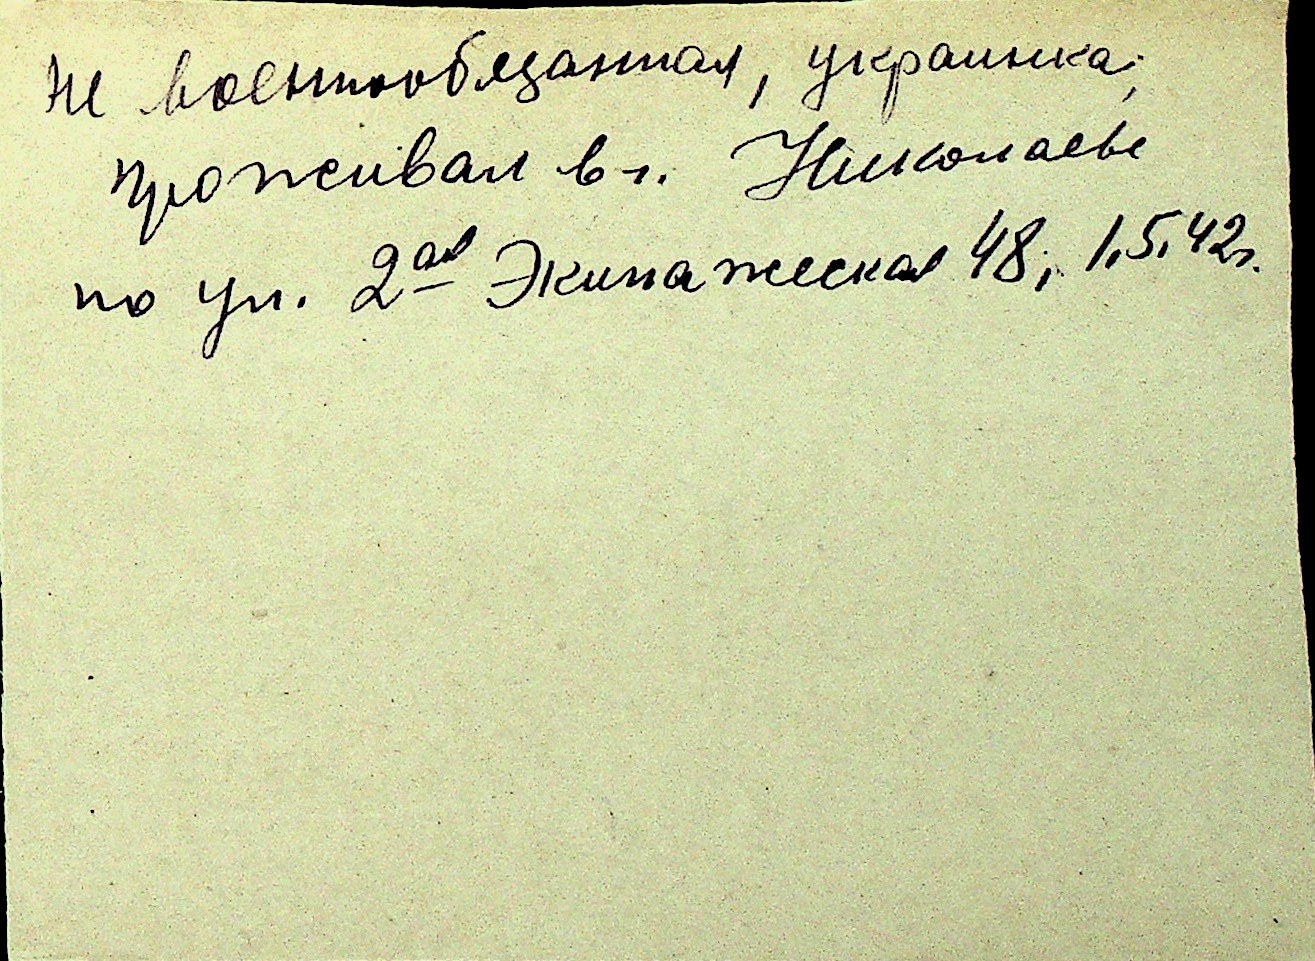 Не военнообязанная, украинка;
проживал в г. Николаеве
по ул. 2ая Экипажеская 48; 1.5.42г.